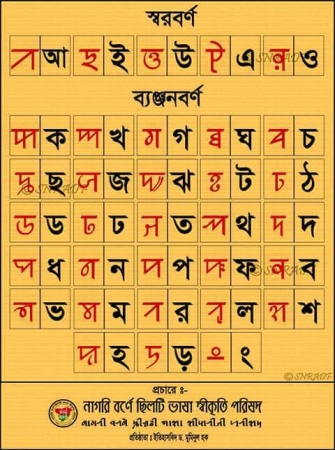 স্বরবর্ণ
ꠀ আ ꠁ ই ꠃ উ ꠄ এ ꠅ ও
ব্যঞ্জনবর্ণ
ꠇ ক ꠈ খ ꠉ গ ꠊ ঘ ꠌ চ
ꠍ ছ ꠎ জ ꠏ ঝ ꠐ ট ꠑ ঠ
ꠒ ড ꠓ ঢ ꠔ ত ꠕ থ ꠖ দ
ꠗ ধ ꠘ ন ꠙ প ꠚ ফ ꠛ ব
ꠜ ভ ꠝ ম ꠞ র ꠟ ল ꠡ শ
ꠢ হ ꠠ ড় ꠋ ং
© SNRAOF
প্রচারে ঃ-
নাগরি বর্ণে ছিলটি ভাষা স্বীকৃতি পরিষদ
প্রতিষ্ঠাতা : ইতিহাসবিদ ড. মুমিনুল হক